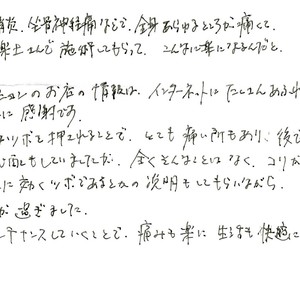 坐骨神経痛などで、全身あらゆるところが痛くて、
楽土さんで施術してもらって、こんなに楽になるんだと、
ションのお店の情報は、インターネットにたくさんあるけれ
に感謝です。
ツボを押されることで、とても痛い所もあり、後で
心配もしていましたが、全くそんなことはなく、コリが
に効くツボであるとかの説明もしてもらいながら、
が過ぎました。
ンテナンスしていくことで、痛みも楽に生活も快適に